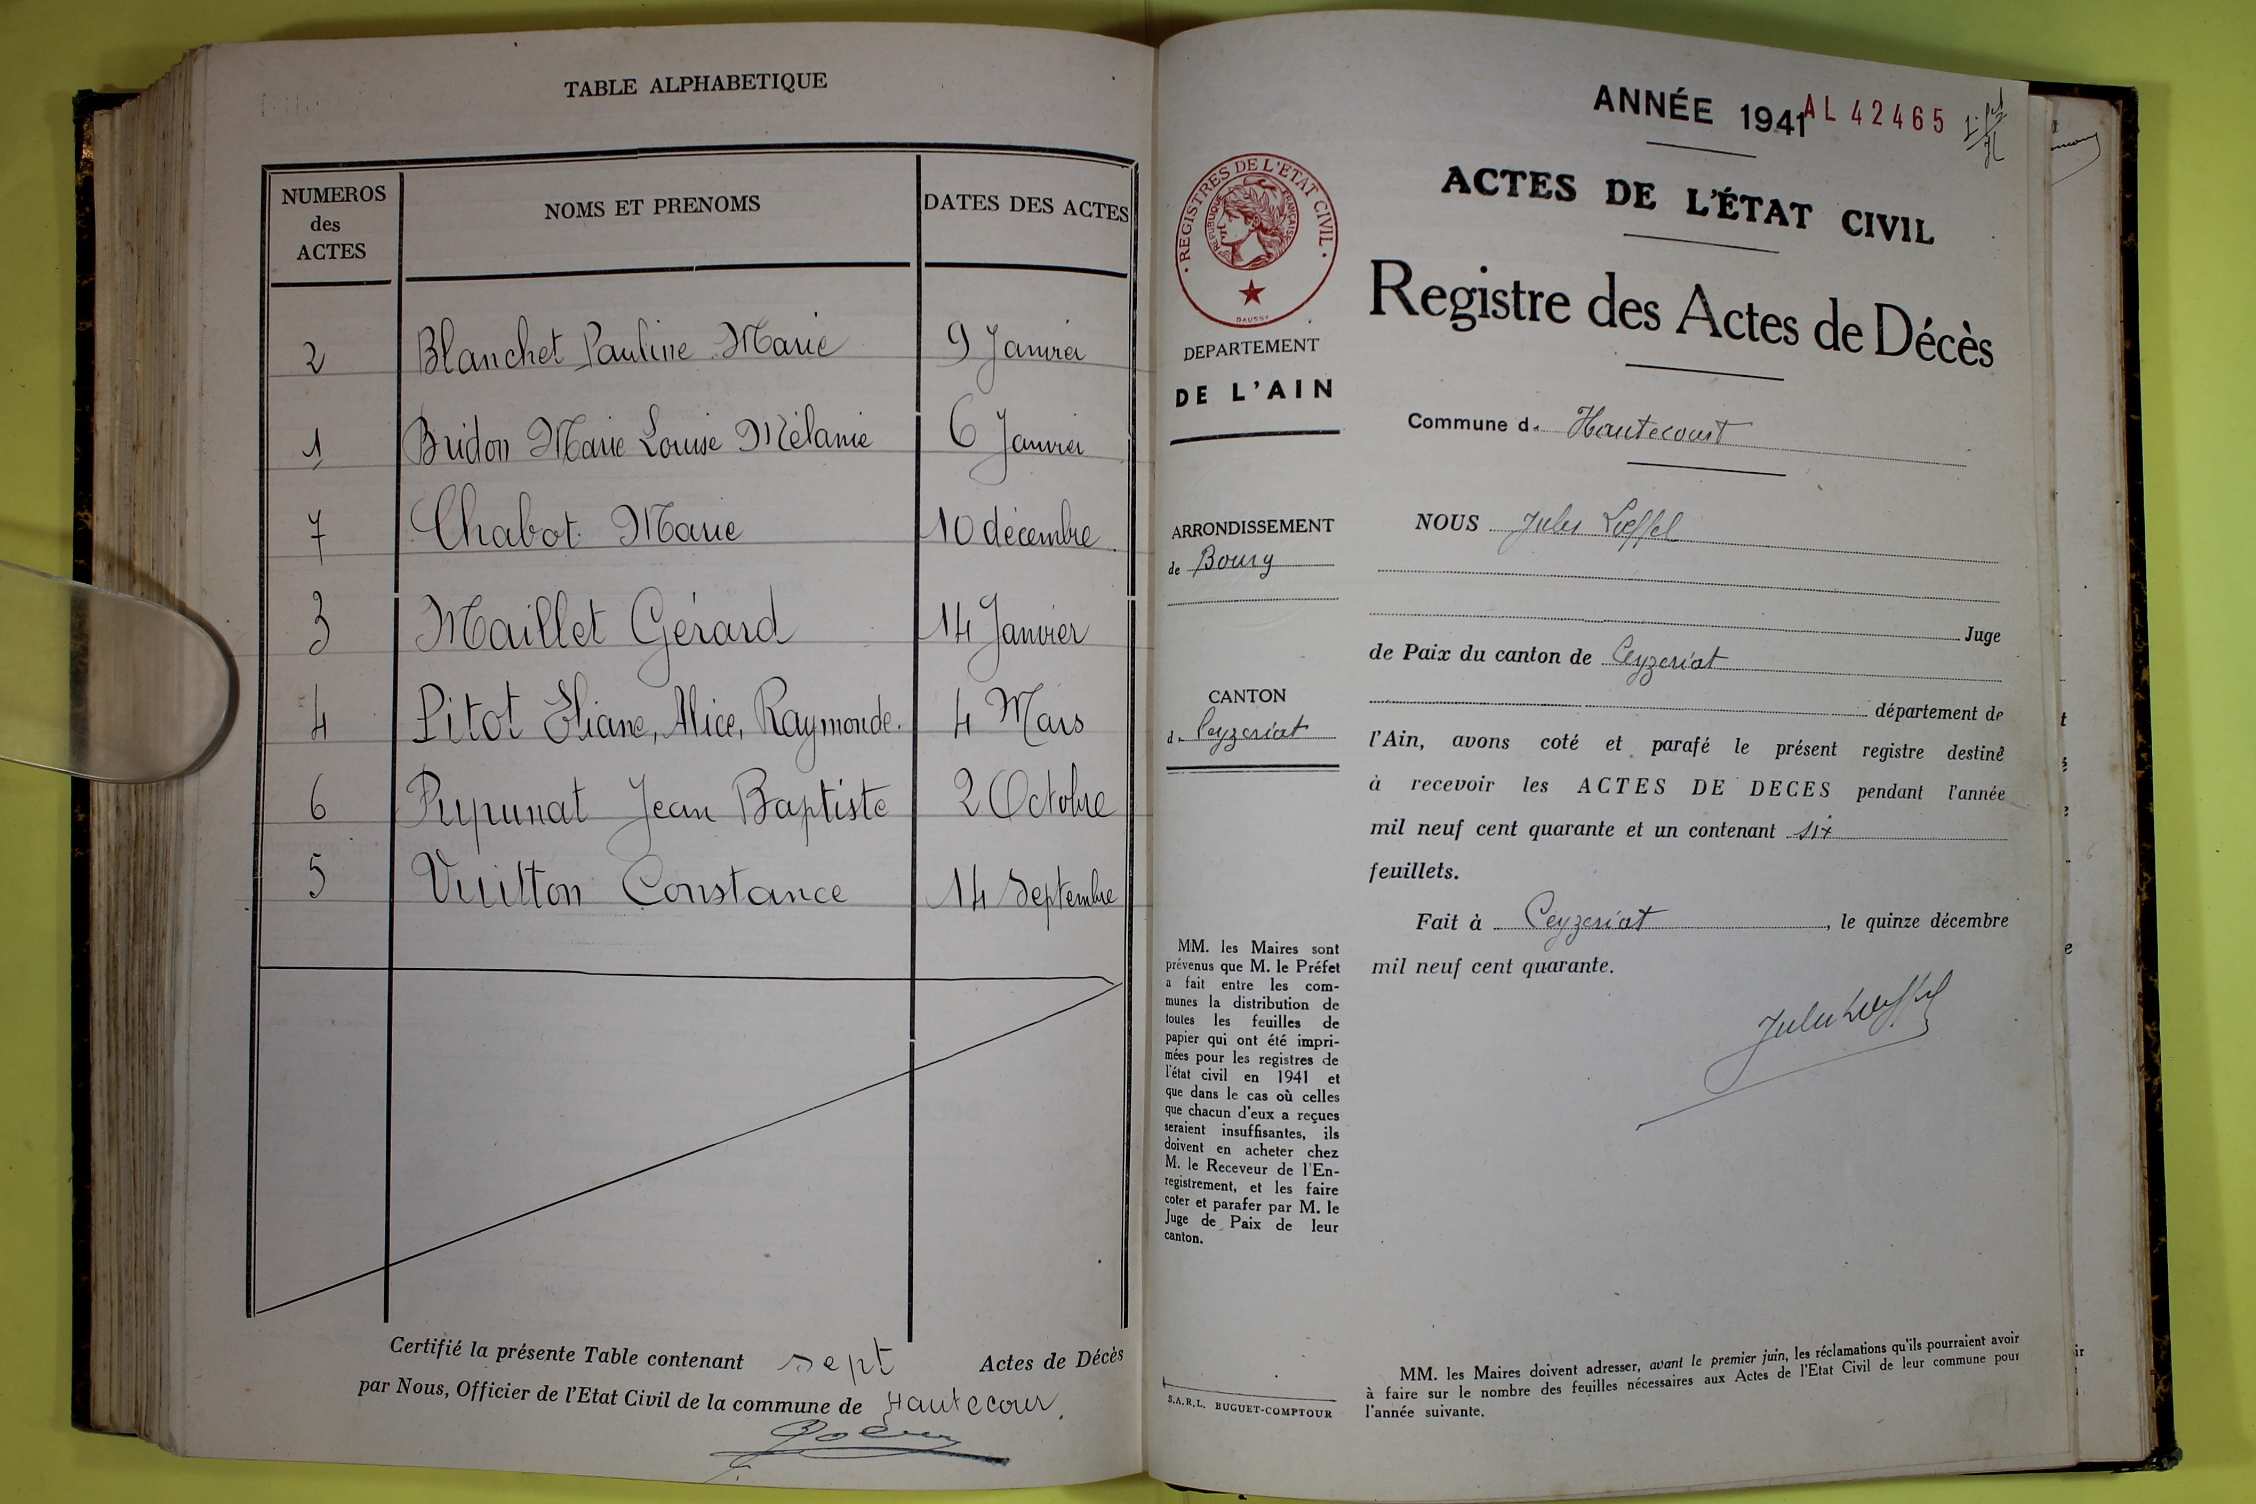 TABLE ALPHABETIQUE
NUMEROS des ACTES NOMS ET PRENOMS DATES DES ACTES
2 Blanchet Pauline Marie 9 Janvier
1 Bridon Marie Louise Mélanie 6 Janvier
7 Chabot Marie 10 décembre
3 Maillet Gérard 14 Janvier
4 Pitot Eliane, Alice, Raymonde. 4 Mars
6 Pupunat Jean Baptiste 2 Octobre
5 Vuitton Constance 14 Septembre
Certifié la présente Table contenant sept Actes de Décès
par Nous, Officier de l'Etat Civil de la commune de Hautecour.
ANNÉE 1941
AL 42465
ACTES DE L'ÉTAT CIVIL
Registre des Actes de Décès
REGISTRES DE L'ETAT CIVIL
REPUBLIQUE FRANÇAISE
DAUSSY
DEPARTEMENT
DE L'AIN
ARRONDISSEMENT
de Bourg
CANTON
d. Ceyzeriat
MM. les Maires sont
prévenus que M. le Préfet
a fait entre les com-
munes la distribution de
toutes les feuilles de
papier qui ont été impri-
mées pour les registres de
l'état civil en 1941 et
que dans le cas où celles
que chacun d'eux a reçues
seraient insuffisantes, ils
doivent en acheter chez
M. le Receveur de l'En-
registrement, et les faire
coter et parafer par M. le
Juge de Paix de leur
canton.
S.A.R.L. BUGUET-COMPTOUR
Commune d. Hautecourt
NOUS Jules Lœffel
Juge
de Paix du canton de Ceyzeriat
département de
l'Ain, avons coté et parafé le présent registre destiné
à recevoir les ACTES DE DECES pendant l'année
mil neuf cent quarante et un contenant six
feuillets.
Fait à Ceyzeriat, le quinze décembre
mil neuf cent quarante.
Jules Lœffel
MM. les Maires doivent adresser, avant le premier juin, les réclamations qu'ils pourraient avoir
à faire sur le nombre des feuilles nécessaires aux Actes de l'Etat Civil de leur commune pour
l'année suivante.